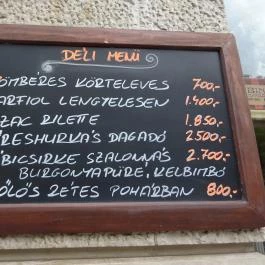 DELI MENÜ
ÖMBÉRES KÖRTELEVES 700,-
ARFIOL LENGYELESEN 1.400,-
ZAC RILETTE 1.850,-
RESHURKÁS DAGADÓ 2.500,-
BICSIRKE SZALONNÁS 2.700,-
BURGONYAPÜRÉ, KELBIMBÓ
ŐLŐS RÉTES POHÁRBAN 800,-